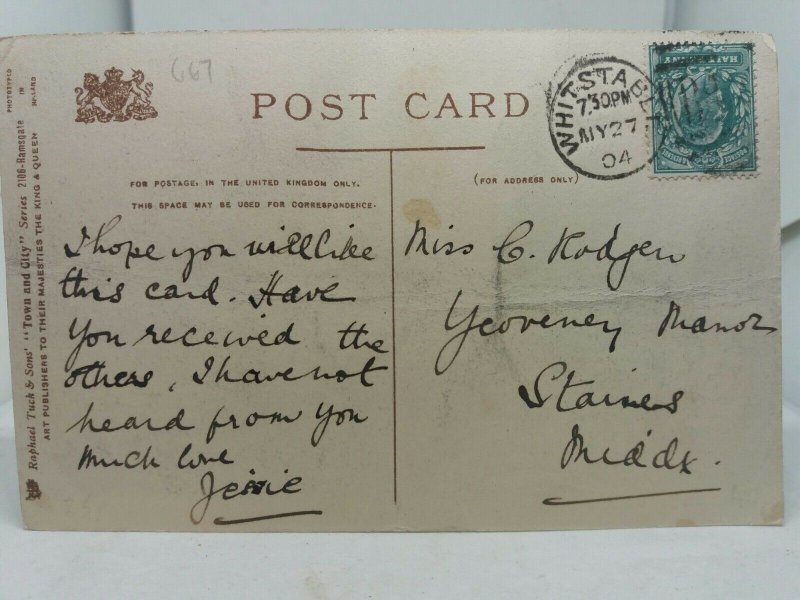 667
POST CARD
WHITSTABLE
7.30PM
MY 27
04
HALFPENNY
FOR POSTAGE, IN THE UNITED KINGDOM ONLY.
THIS SPACE MAY BE USED FOR CORRESPONDENCE.
(FOR ADDRESS ONLY)
I hope you will like
this card. Have
you received the
others, I have not
heard from you
Much love
Jessie
Miss C.
Yeoveney Manor
Staines
Middx.
Raphael Tuck & Sons' "Town and City" Series 2106-Ramsgate
ART PUBLISHERS TO THEIR MAJESTIES THE KING & QUEEN
PHOTOTYPED
IN
HOLLAND